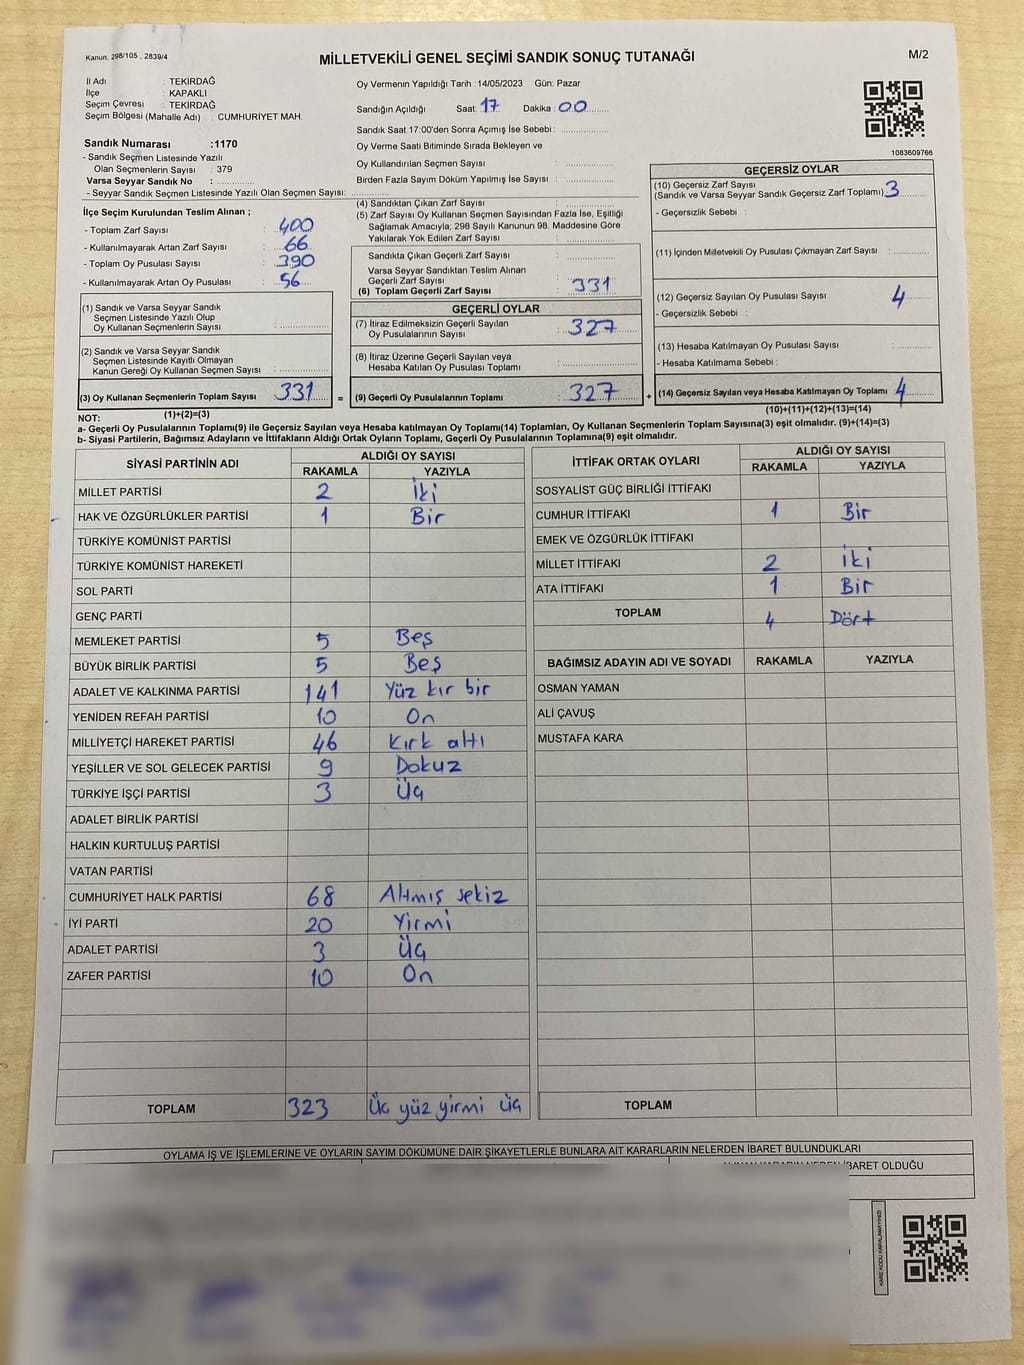 Kanun: 298/105 , 2839/4
MİLLETVEKİLİ GENEL SEÇİMİ SANDIK SONUÇ TUTANAĞI
M/2
İl Adı : TEKİRDAĞ
İlçe : KAPAKLI
Seçim Çevresi : TEKİRDAĞ
Seçim Bölgesi (Mahalle Adı) : CUMHURİYET MAH.
Sandık Numarası :1170
- Sandık Seçmen Listesinde Yazılı
Olan Seçmenlerin Sayısı : 379
Varsa Seyyar Sandık No :
- Seyyar Sandık Seçmen Listesinde Yazılı Olan Seçmen Sayısı:
Oy Vermenin Yapıldığı Tarih :14/05/2023 Gün: Pazar
Sandığın Açıldığı Saat: 17 Dakika : 00
Sandık Saat 17:00'den Sonra Açımış İse Sebebi :
Oy Verme Saati Bitiminde Sırada Bekleyen ve
Oy Kullandırılan Seçmen Sayısı :
Birden Fazla Sayım Döküm Yapılmış İse Sayısı :
1083609766
İlçe Seçim Kurulundan Teslim Alınan ;
- Toplam Zarf Sayısı : 400
- Kullanılmayarak Artan Zarf Sayısı : 66
- Toplam Oy Pusulası Sayısı : 390
- Kullanılmayarak Artan Oy Pusulası : 56
(1) Sandık ve Varsa Seyyar Sandık
Seçmen Listesinde Yazılı Olup
Oy Kullanan Seçmenlerin Sayısı :
(2) Sandık ve Varsa Seyyar Sandık
Seçmen Listesinde Kayıtlı Olmayan
Kanun Gereği Oy Kullanan Seçmen Sayısı :
(3) Oy Kullanan Seçmenlerin Toplam Sayısı 331 =
(1)+(2)=(3)
(4) Sandıktan Çıkan Zarf Sayısı :
(5) Zarf Sayısı Oy Kullanan Seçmen Sayısından Fazla İse, Eşitliği
Sağlamak Amacıyla; 298 Sayılı Kanunun 98. Maddesine Göre
Yakılarak Yok Edilen Zarf Sayısı :
Sandıkta Çıkan Geçerli Zarf Sayısı :
Varsa Seyyar Sandıktan Teslim Alınan
Geçerli Zarf Sayısı :
(6) Toplam Geçerli Zarf Sayısı : 331
GEÇERLİ OYLAR
(7) İtiraz Edilmeksizin Geçerli Sayılan
Oy Pusulalarının Sayısı : 327
(8) İtiraz Üzerine Geçerli Sayılan veya
Hesaba Katılan Oy Pusulası Toplamı :
(9) Geçerli Oy Pusulalarının Toplamı 327 +
GEÇERSİZ OYLAR
(10) Geçersiz Zarf Sayısı
(Sandık ve Varsa Seyyar Sandık Geçersiz Zarf Toplamı) 3
- Geçersizlik Sebebi :
(11) İçinden Milletvekili Oy Pusulası Çıkmayan Zarf Sayısı :
(12) Geçersiz Sayılan Oy Pusulası Sayısı : 4
- Geçersizlik Sebebi :
(13) Hesaba Katılmayan Oy Pusulası Sayısı :
- Hesaba Katılmama Sebebi :
(14) Geçersiz Sayılan veya Hesaba Katılmayan Oy Toplamı 4
(10)+(11)+(12)+(13)=(14)
NOT:
a- Geçerli Oy Pusulalarının Toplamı(9) ile Geçersiz Sayılan veya Hesaba katılmayan Oy Toplamı(14) Toplamları, Oy Kullanan Seçmenlerin Toplam Sayısına(3) eşit olmalıdır. (9)+(14)=(3)
b- Siyasi Partilerin, Bağımsız Adayların ve İttifakların Aldığı Ortak Oyların Toplamı, Geçerli Oy Pusulalarının Toplamına(9) eşit olmalıdır.
SİYASİ PARTİNİN ADI ALDIĞI OY SAYISI
RAKAMLA YAZIYLA
MİLLET PARTİSİ 2 İki
HAK VE ÖZGÜRLÜKLER PARTİSİ 1 Bir
TÜRKİYE KOMÜNİST PARTİSİ
TÜRKİYE KOMÜNİST HAREKETİ
SOL PARTİ
GENÇ PARTİ
MEMLEKET PARTİSİ 5 Beş
BÜYÜK BİRLİK PARTİSİ 5 Beş
ADALET VE KALKINMA PARTİSİ 141 Yüz kır bir
YENİDEN REFAH PARTİSİ 10 On
MİLLİYETÇİ HAREKET PARTİSİ 46 Kırk altı
YEŞİLLER VE SOL GELECEK PARTİSİ 9 Dokuz
TÜRKİYE İŞÇİ PARTİSİ 3 Üç
ADALET BİRLİK PARTİSİ
HALKIN KURTULUŞ PARTİSİ
VATAN PARTİSİ
CUMHURİYET HALK PARTİSİ 68 Altmış sekiz
İYİ PARTİ 20 Yirmi
ADALET PARTİSİ 3 Üç
ZAFER PARTİSİ 10 On
TOPLAM 323 Üç yüz yirmi üç
İTTİFAK ORTAK OYLARI ALDIĞI OY SAYISI
RAKAMLA YAZIYLA
SOSYALİST GÜÇ BİRLİĞİ İTTİFAKI
CUMHUR İTTİFAKI 1 Bir
EMEK VE ÖZGÜRLÜK İTTİFAKI
MİLLET İTTİFAKI 2 İki
ATA İTTİFAKI 1 Bir
TOPLAM 4 Dört
BAĞIMSIZ ADAYIN ADI VE SOYADI RAKAMLA YAZIYLA
OSMAN YAMAN
ALİ ÇAVUŞ
MUSTAFA KARA
TOPLAM
OYLAMA İŞ VE İŞLEMLERİNE VE OYLARIN SAYIM DÖKÜMÜNE DAİR ŞİKAYETLERLE BUNLARA AİT KARARLARIN NELERDEN İBARET BULUNDUKLARI
İBARET OLDUĞU
KARE KODU KARALAMAYINIZ!